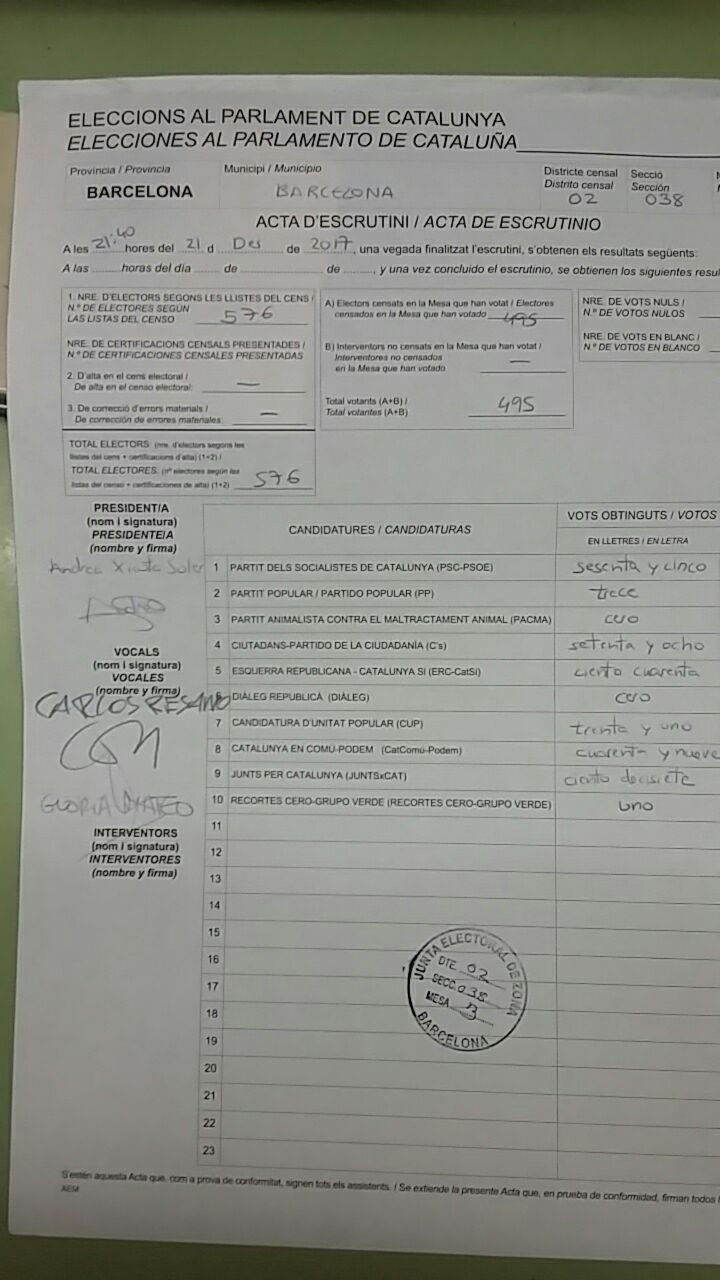 ELECCIONS AL PARLAMENT DE CATALUNYA
ELECCIONES AL PARLAMENTO DE CATALUÑA
Provincia / Provincia
BARCELONA
Municipi / Municipio
BARCELONA
Districte censal
Distrito censal
02
Secció
Sección
038
ACTA D'ESCRUTINI / ACTA DE ESCRUTINIO
A les 21:40 hores del 21 d Des de 2017, una vegada finalitzat l'escrutini, s'obtenen els resultats següents:
A las ........ horas del día ........ de ........ de ........, y una vez concluido el escrutinio, se obtienen los siguientes resul
1. NRE. D'ELECTORS SEGONS LES LLISTES DEL CENS /
N.º DE ELECTORES SEGÚN
LAS LISTAS DEL CENSO 576
NRE. DE CERTIFICACIONS CENSALS PRESENTADES /
N.º DE CERTIFICACIONES CENSALES PRESENTADAS
2. D'alta en el cens electoral /
De alta en el censo electoral: —
3. De correcció d'errors materials /
De corrección de errores materiales: —
TOTAL ELECTORS: (nre. d'electors segons les
llistes del cens + certificacions d'alta) (1+2) /
TOTAL ELECTORES: (nº electores según las
listas del censo + certificaciones de alta) (1+2) 576
A) Electors censats en la Mesa que han votat / Electores
censados en la Mesa que han votado 495
B) Interventors no censats en la Mesa que han votat /
Interventores no censados
en la Mesa que han votado —
Total votants (A+B) /
Total votantes (A+B) 495
NRE. DE VOTS NULS /
N.º DE VOTOS NULOS
NRE. DE VOTS EN BLANC /
N.º DE VOTOS EN BLANCO
PRESIDENT/A
(nom i signatura)
PRESIDENTE/A
(nombre y firma)
Andrea Soler
VOCALS
(nom i signatura)
VOCALES
(nombre y firma)
CARLOS RESANO
GLORIA MATEO
INTERVENTORS
(nom i signatura)
INTERVENTORES
(nombre y firma)
CANDIDATURES / CANDIDATURAS
VOTS OBTINGUTS / VOTOS
EN LLETRES / EN LETRA
1 PARTIT DELS SOCIALISTES DE CATALUNYA (PSC-PSOE) sesenta y cinco
2 PARTIT POPULAR / PARTIDO POPULAR (PP) trece
3 PARTIT ANIMALISTA CONTRA EL MALTRACTAMENT ANIMAL (PACMA) cero
4 CIUTADANS-PARTIDO DE LA CIUDADANÍA (C's) setenta y ocho
5 ESQUERRA REPUBLICANA - CATALUNYA SI (ERC-CatSí) ciento cuarenta
6 DIÀLEG REPUBLICÀ (DIÀLEG) cero
7 CANDIDATURA D'UNITAT POPULAR (CUP) trenta y uno
8 CATALUNYA EN COMÚ-PODEM (CatComú-Podem) cuarenta y nueve
9 JUNTS PER CATALUNYA (JUNTSxCAT) ciento decisiete
10 RECORTES CERO-GRUPO VERDE (RECORTES CERO-GRUPO VERDE) uno
11
12
13
14
15
16
17
18
19
20
21
22
23
JUNTA ELECTORAL DE ZONA
DTE. 02
SECC. 038
MESA B
BARCELONA
S'estén aquesta Acta que, com a prova de conformitat, signen tots els assistents. / Se extiende la presente Acta que, en prueba de conformidad, firman todos l
AEM